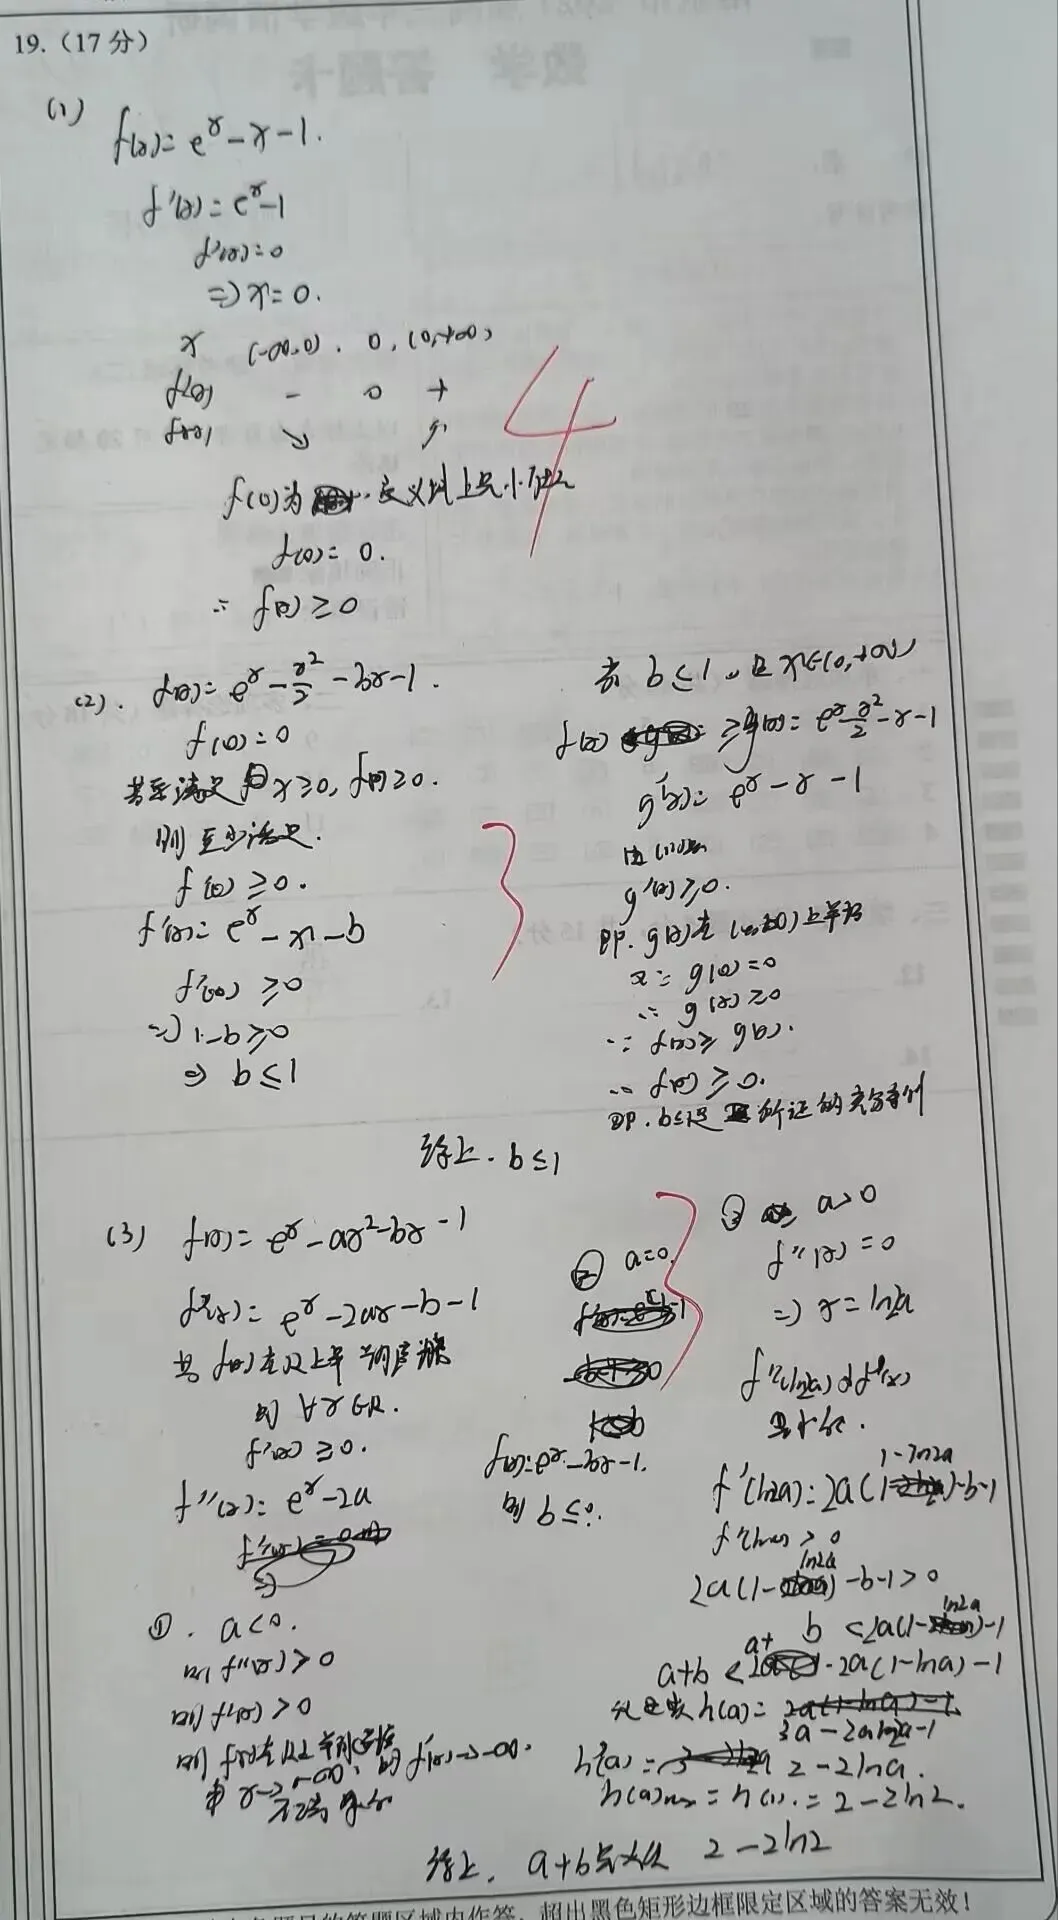 19.（17分）
(1)
f(x)=e^x-x-1.
f'(x)=e^x-1
f'(x)=0
=> x=0.
x (-∞,0). 0, (0,+∞)
f'(x) - 0 +
f(x) ↘ ↗
f(0)为 定义域上最小值
f(0)=0.
∴ f(x)≥0
(2). f(x)=e^x-x²/2-bx-1.
f(0)=0
若要满足 x≥0, f(x)≥0.
则至少满足.
f'(0)≥0.
f'(x)=e^x-x-b
f'(0)≥0
=> 1-b≥0
=> b≤1
若 b≤1, 且 x∈(0,+∞)
f(x) ≥g(x)=e^x-x²/2-x-1
g'(x)=e^x-x-1
由(1)知
g'(x)≥0.
即. g(x)在(0,+∞)上单增
又∵ g(0)=0
∴ g(x)≥0
∵ f(x)≥g(x).
∴ f(x)≥0.
即. b≤1是 所证的充分条件
综上. b≤1
(3) f(x)=e^x-ax²-bx-1
f'(x)=e^x-2ax-b-1
若f(x)在R上单调递增
则 ∀x∈R.
f'(x)≥0.
f''(x)=e^x-2a
①. a<0.
则 f''(x)>0
则 f'(x)>0
则 f(x)在R上单调递增
当 x→-∞, 则 f'(x)→-∞.
② a=0.
f(x)=e^x-bx-1.
则 b≤0.
③ a>0
f''(x)=0
=> x=ln2a
f'(ln2a)为f'(x)
最小值.
f'(ln2a)=2a(1-ln2a)-b-1
f'(ln2a)>0
2a(1-ln2a)-b-1>0
b<2a(1-ln2a)-1
a+b<a+2a(1-ln2a)-1
h(a)=
3a-2aln2a-1
h'(a)= 2-2lna.
h(a)max=h(1).=2-2ln2.
综上. a+b最大值 2-2ln2
答题区域内作答，超出黑色矩形边框限定区域的答案无效！